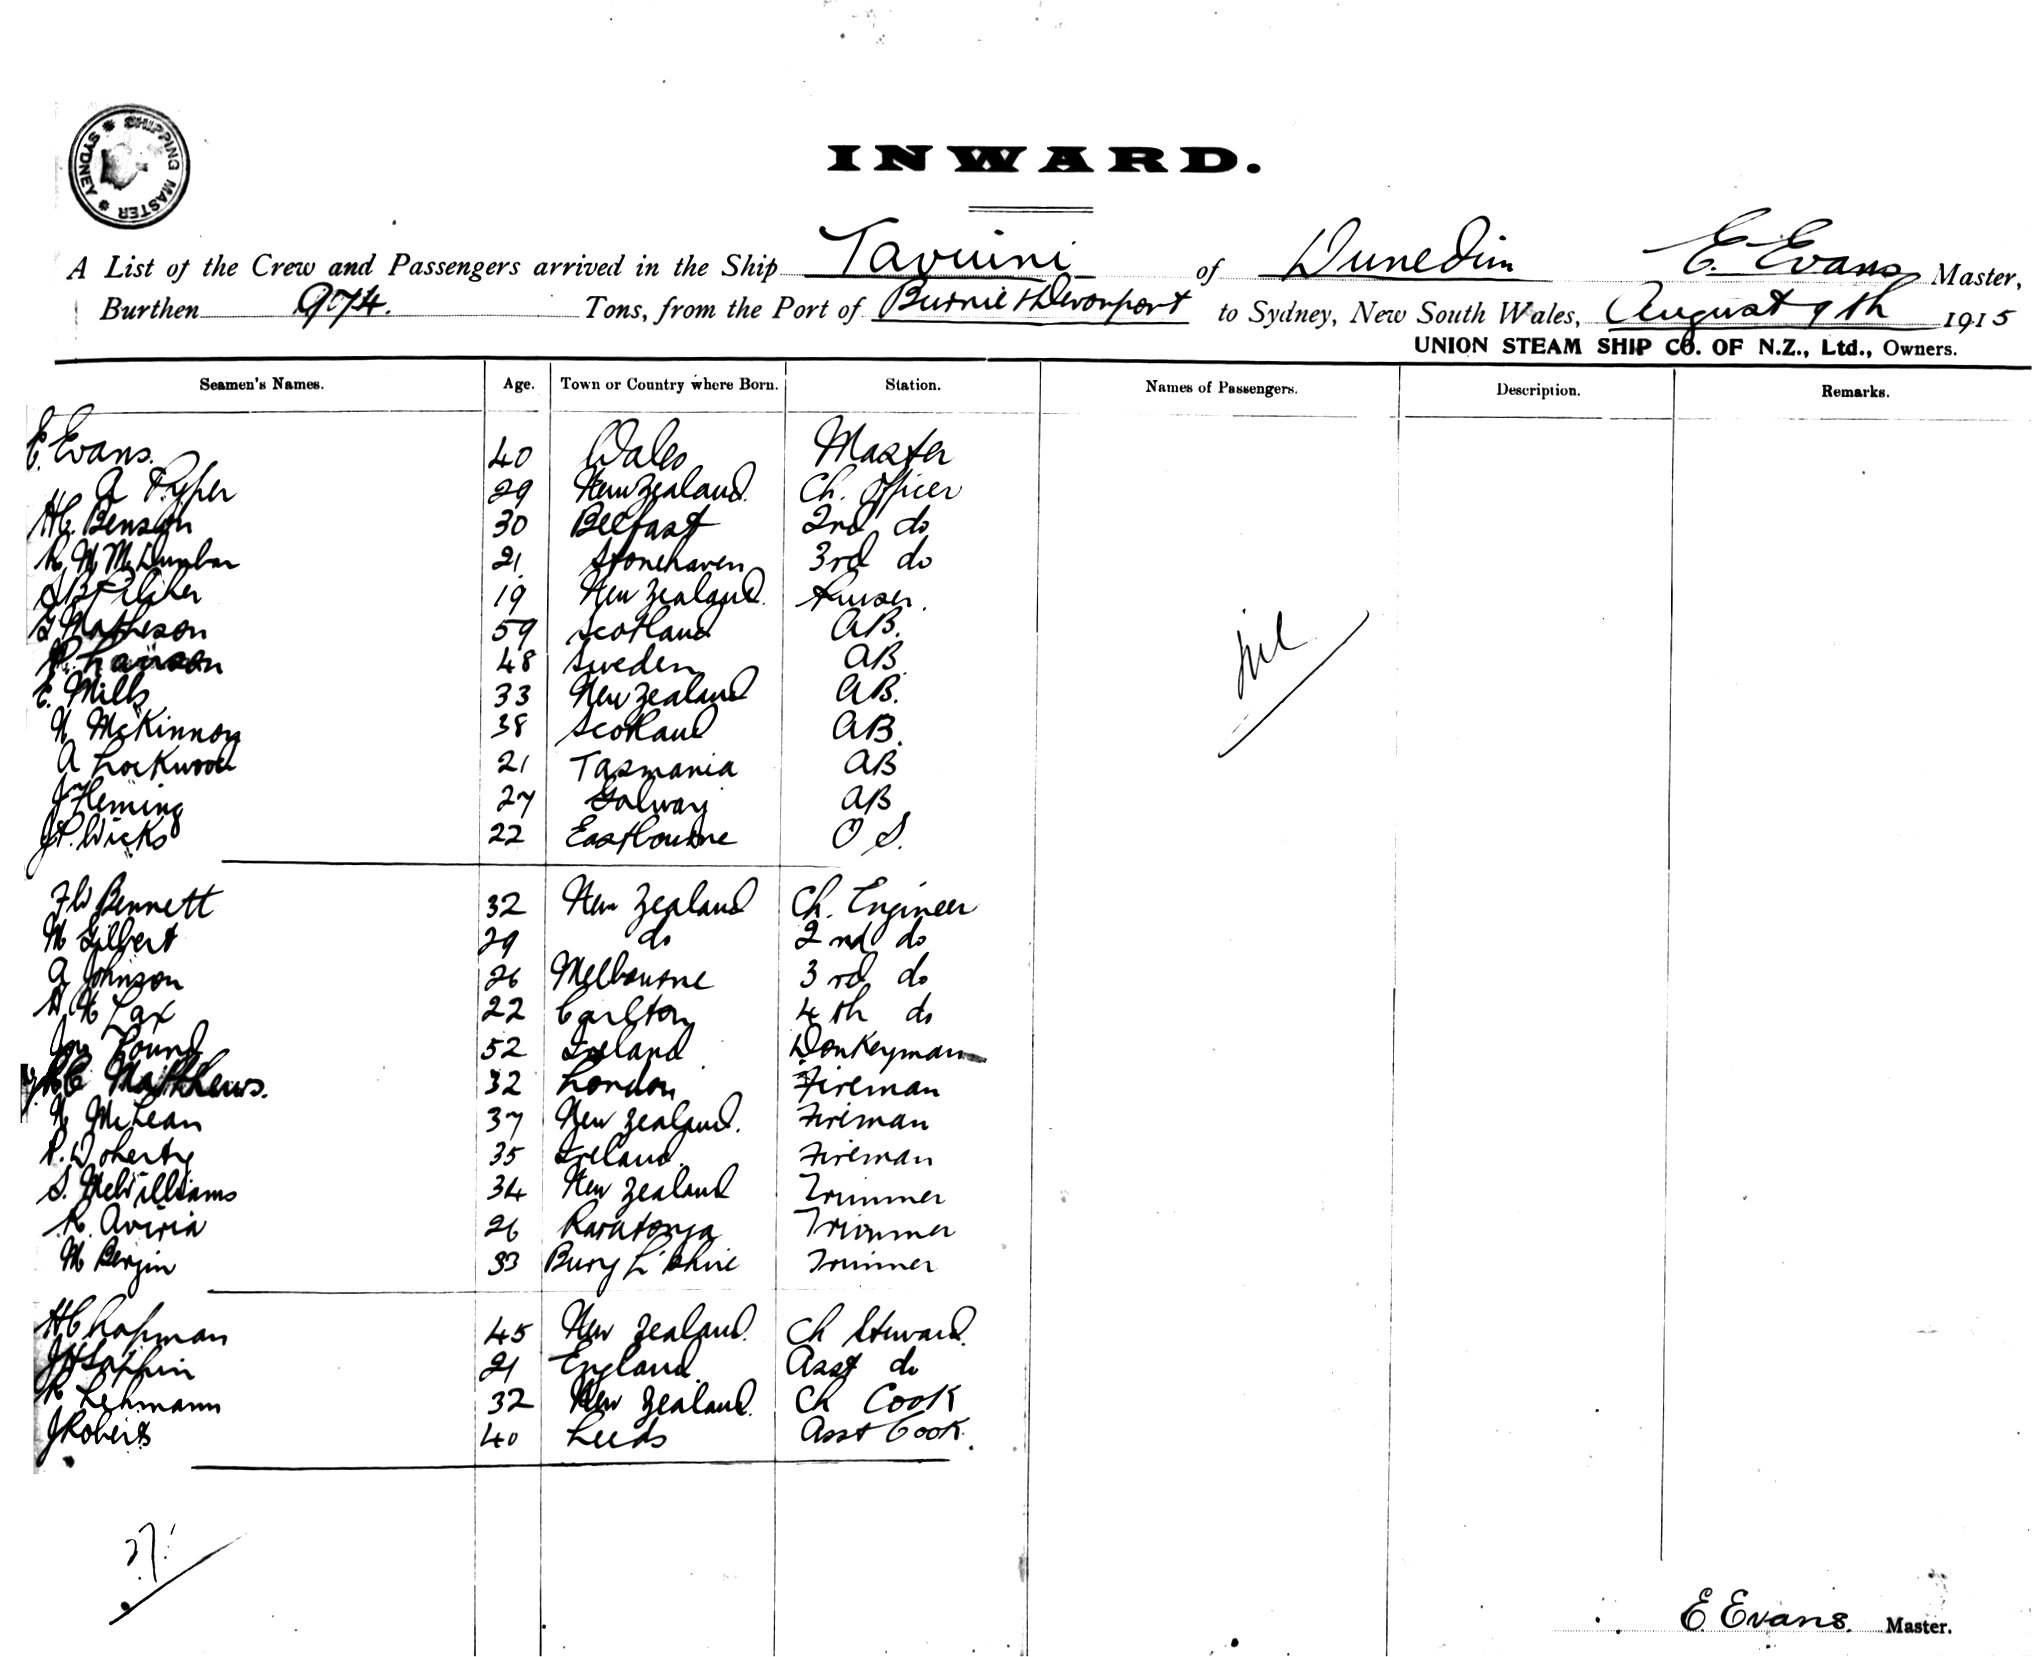 SHIPPING MASTER SYDNEY
INWARD.
A List of the Crew and Passengers arrived in the Ship Taviuni of Dunedin E. Evans Master,
Burthen 974. Tons, from the Port of Burnie & Devonport to Sydney, New South Wales, August 9th 1915
UNION STEAM SHIP CO. OF N.Z., Ltd., Owners.
Seamen's Names. Age. Town or Country where Born. Station. Names of Passengers. Description. Remarks.
E. Evans. 40 Wales Master
A Pyper 29 New Zealand. Ch. Officer
H C. Benson 30 Belfast 2nd do
R N M Dunbar 21 Stonehaven 3rd do
19 New Zealand. Purser.
Matheson 59 Scotland AB.
48 Sweden AB
E. Mills 33 New Zealand AB.
N McKinnon 38 Scotland AB.
A Lockwood 21 Tasmania AB
J Fleming 27 Galway AB
J P. Wicks 22 Eastbourne O S.
nil
F W Bennett 32 New Zealand Ch. Engineer
W Gilbert 29 do 2nd do
A Johnson 26 Melbourne 3rd do
Lax 22 Carlton 4th do
52 Ireland Donkeyman
Matthews. 32 London Fireman
N McLean 37 New Zealand. Fireman
P. Doherty 35 Ireland. Fireman
S. McWilliams 34 New Zealand Trimmer
R. Aviria 26 Raratonga Trimmer
M Bergin 33 Bury L'shire Trimmer
H Chapman 45 New Zealand. Ch Steward.
21 England. Asst do
R Lehmann 32 New Zealand. Ch Cook
J Roberts 40 Leeds Asst Cook.
27
E Evans. Master.